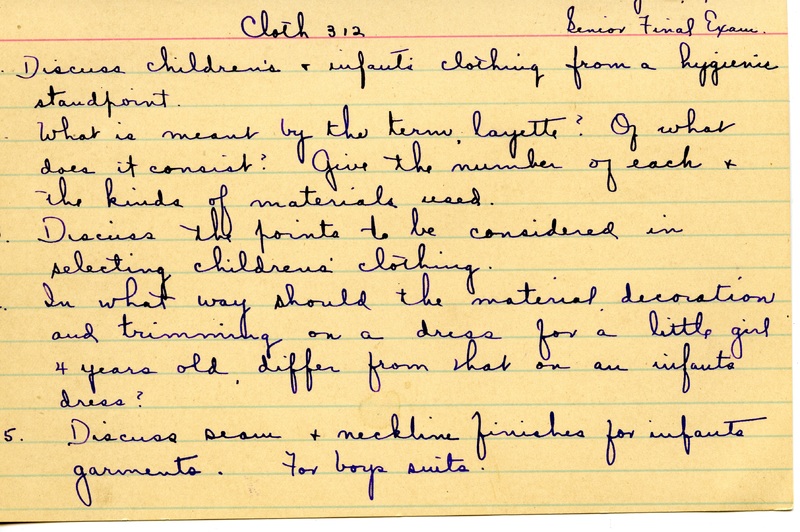 Cloth 312 Senior Final Exam.
. Discuss children's + infants clothing from a hygienic
standpoint.
. What is meant by the term, layette? Of what
does it consist? Give the number of each +
the kinds of materials used.
. Discuss the points to be considered in
selecting childrens' clothing.
. In what way should the material, decoration
and trimming on a dress for a little girl
4 years old, differ from that on an infants
dress?
5. Discuss seam + neckline finishes for infants
garments. For boys suits.